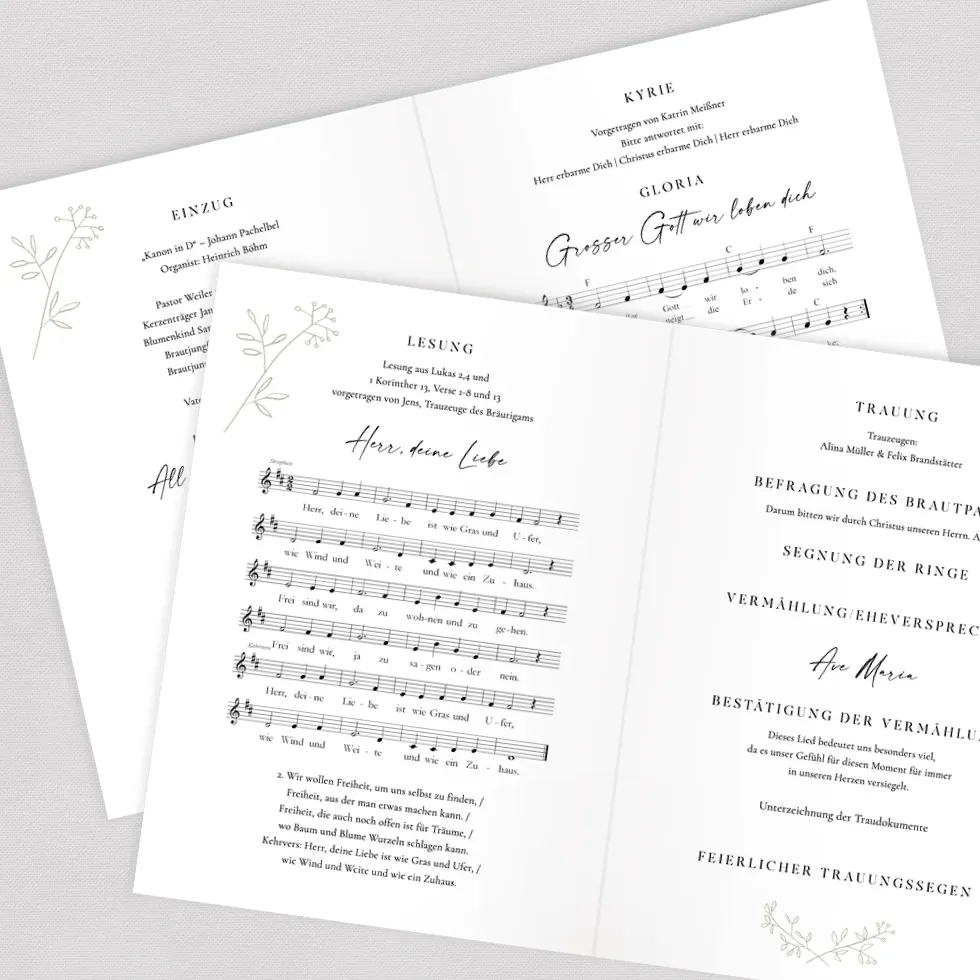 EINZUG
„Kanon in D“ – Johann Pachelbel
Organist: Heinrich Böhm
Pastor Weiler
Kerzenträger Jan
Blumenkind Sar
Brautjungf
Brautjun
Vate
All
KYRIE
Vorgetragen von Katrin Meißner
Bitte antwortet mit:
Herr erbarme Dich | Christus erbarme Dich | Herr erbarme Dich
GLORIA
Grosser Gott wir loben dich
F C F
Gott wir lo - ben dich,
neigt die Er - de sich
C
LESUNG
Lesung aus Lukas 2,4 und
1 Korinther 13, Verse 1-8 und 13
vorgetragen von Jens, Trauzeuge des Bräutigams
Herr, deine Liebe
Strophen
Herr, dei - ne Lie - be ist wie Gras und U - fer,
wie Wind und Wei - te und wie ein Zu - haus.
Frei sind wir, da zu woh-nen und zu ge-hen.
Frei sind wir, ja zu sa - gen o - der nein.
Kehrvers
Herr, dei - ne Lie - be ist wie Gras und U - fer,
wie Wind und Wei - te und wie ein Zu - haus.
2. Wir wollen Freiheit, um uns selbst zu finden, /
Freiheit, aus der man etwas machen kann. /
Freiheit, die auch noch offen ist für Träume, /
wo Baum und Blume Wurzeln schlagen kann.
Kehrvers: Herr, deine Liebe ist wie Gras und Ufer, /
wie Wind und Weite und wie ein Zuhaus.
TRAUUNG
Trauzeugen:
Alina Müller & Felix Brandstätter
BEFRAGUNG DES BRAUTPA
Darum bitten wir durch Christus unseren Herrn. A
SEGNUNG DER RINGE
VERMÄHLUNG/EHEVERSPREC
Ave Maria
BESTÄTIGUNG DER VERMÄHLU
Dieses Lied bedeutet uns besonders viel,
da es unser Gefühl für diesen Moment für immer
in unseren Herzen versiegelt.
Unterzeichnung der Traudokumente
FEIERLICHER TRAUUNGSSEGEN